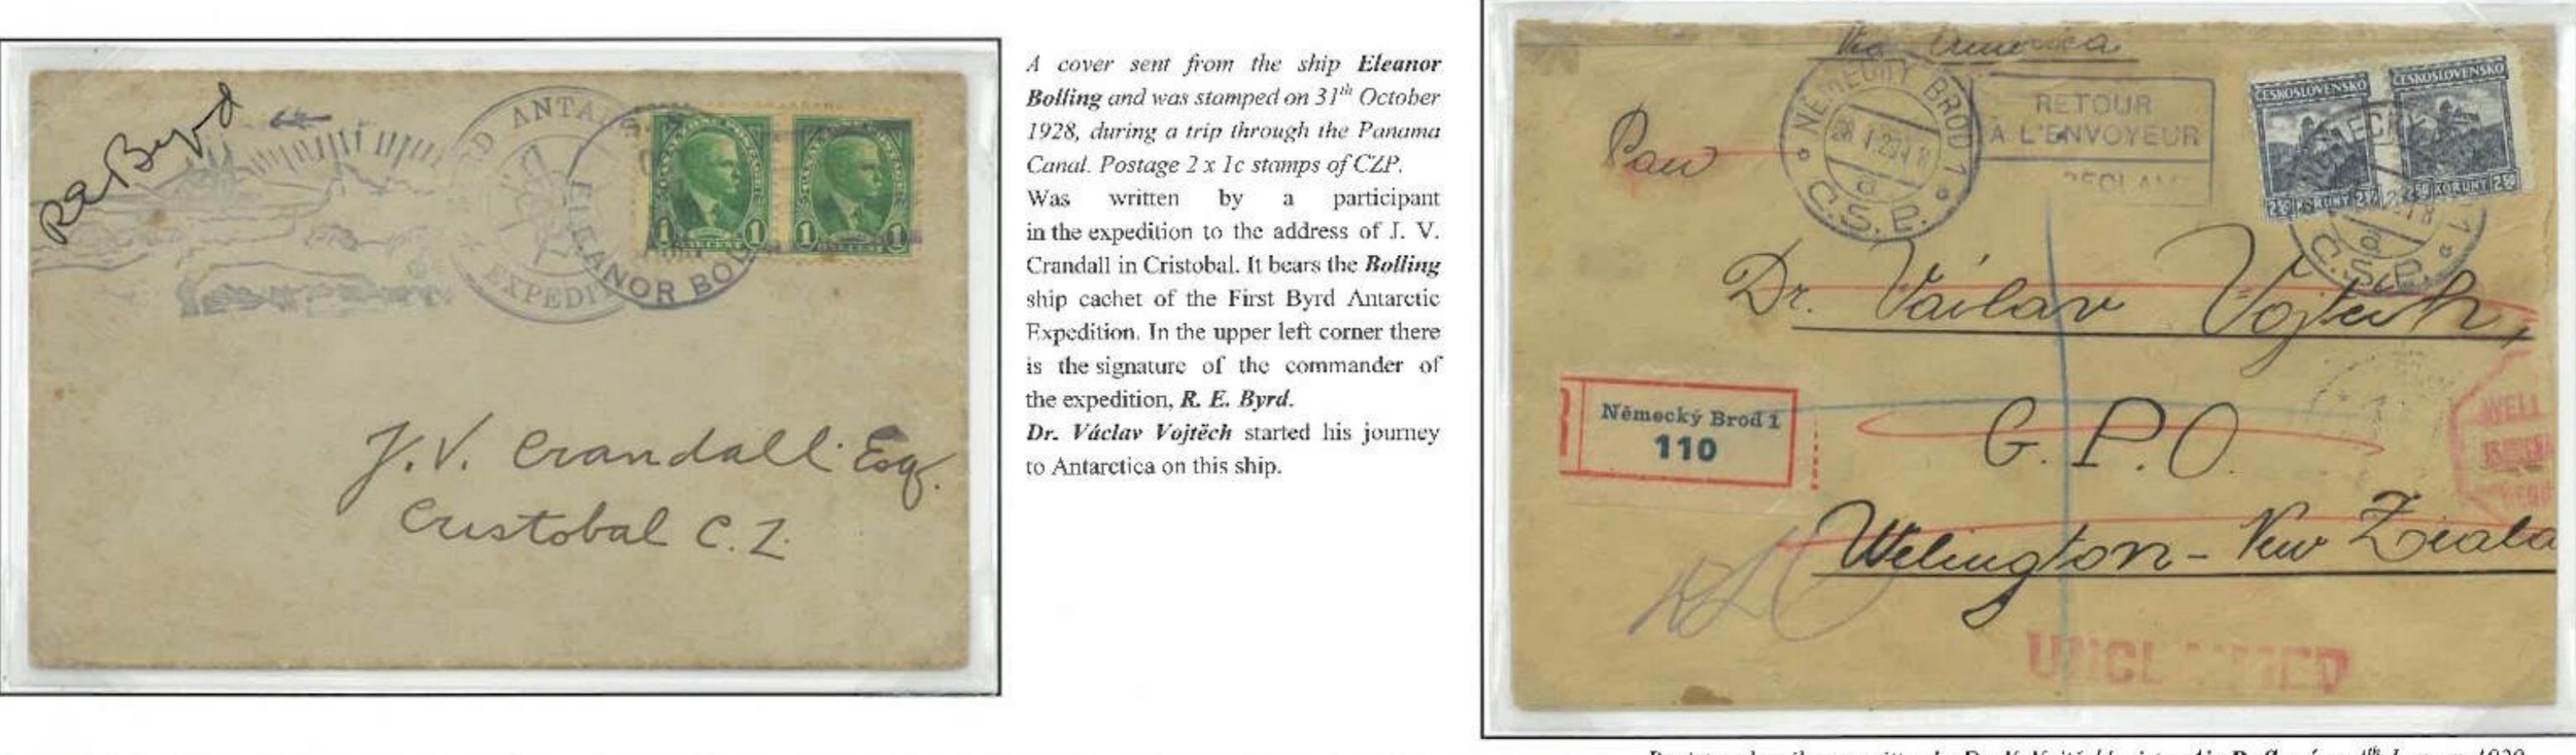 RE Byrd
ANTA
EXPEDI
ELEANOR BOL
1 ONE CENT 1
1 ONE CENT 1
J. V. Crandall Esq.
Cristobal C. Z.
A cover sent from the ship Eleanor
Bolling and was stamped on 31th October
1928, during a trip through the Panama
Canal. Postage 2 x 1c stamps of CZP.
Was written by a participant
in the expedition to the address of J. V.
Crandall in Cristobal. It bears the Bolling
ship cachet of the First Byrd Antarctic
Expedition. In the upper left corner there
is the signature of the commander of
the expedition, R. E. Byrd.
Dr. Václav Vojtěch started his journey
to Antarctica on this ship.
Via America
NĚMECKÝ BROD 1
d
C.S.P.
RETOUR
À L'ENVOYEUR
ČESKOSLOVENSKO
ČESKOSLOVENSKO
2.50 KORUNY
2.50 KORUNY 2.50
d
C.S.P.
Pan
Dr. Václav Vojtěch,
G. P. O.
Německý Brod 1
110
WELL
Welington - New Zeala
UNCLAIMED